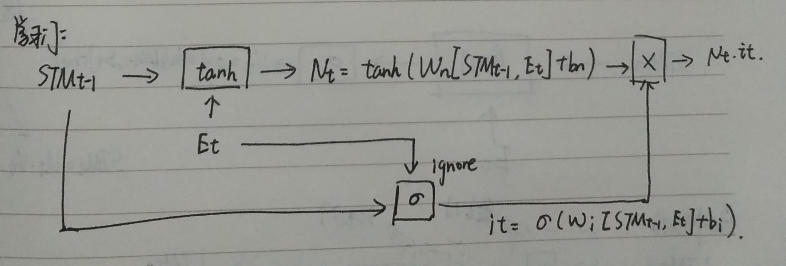 学习门:
STMt-1 → tanh → Nt = tanh(Wn[STMt-1, Et]+bn) → × → Nt·it.
Et
ignore
σ
it = σ(Wi[STMt-1, Et]+bi).